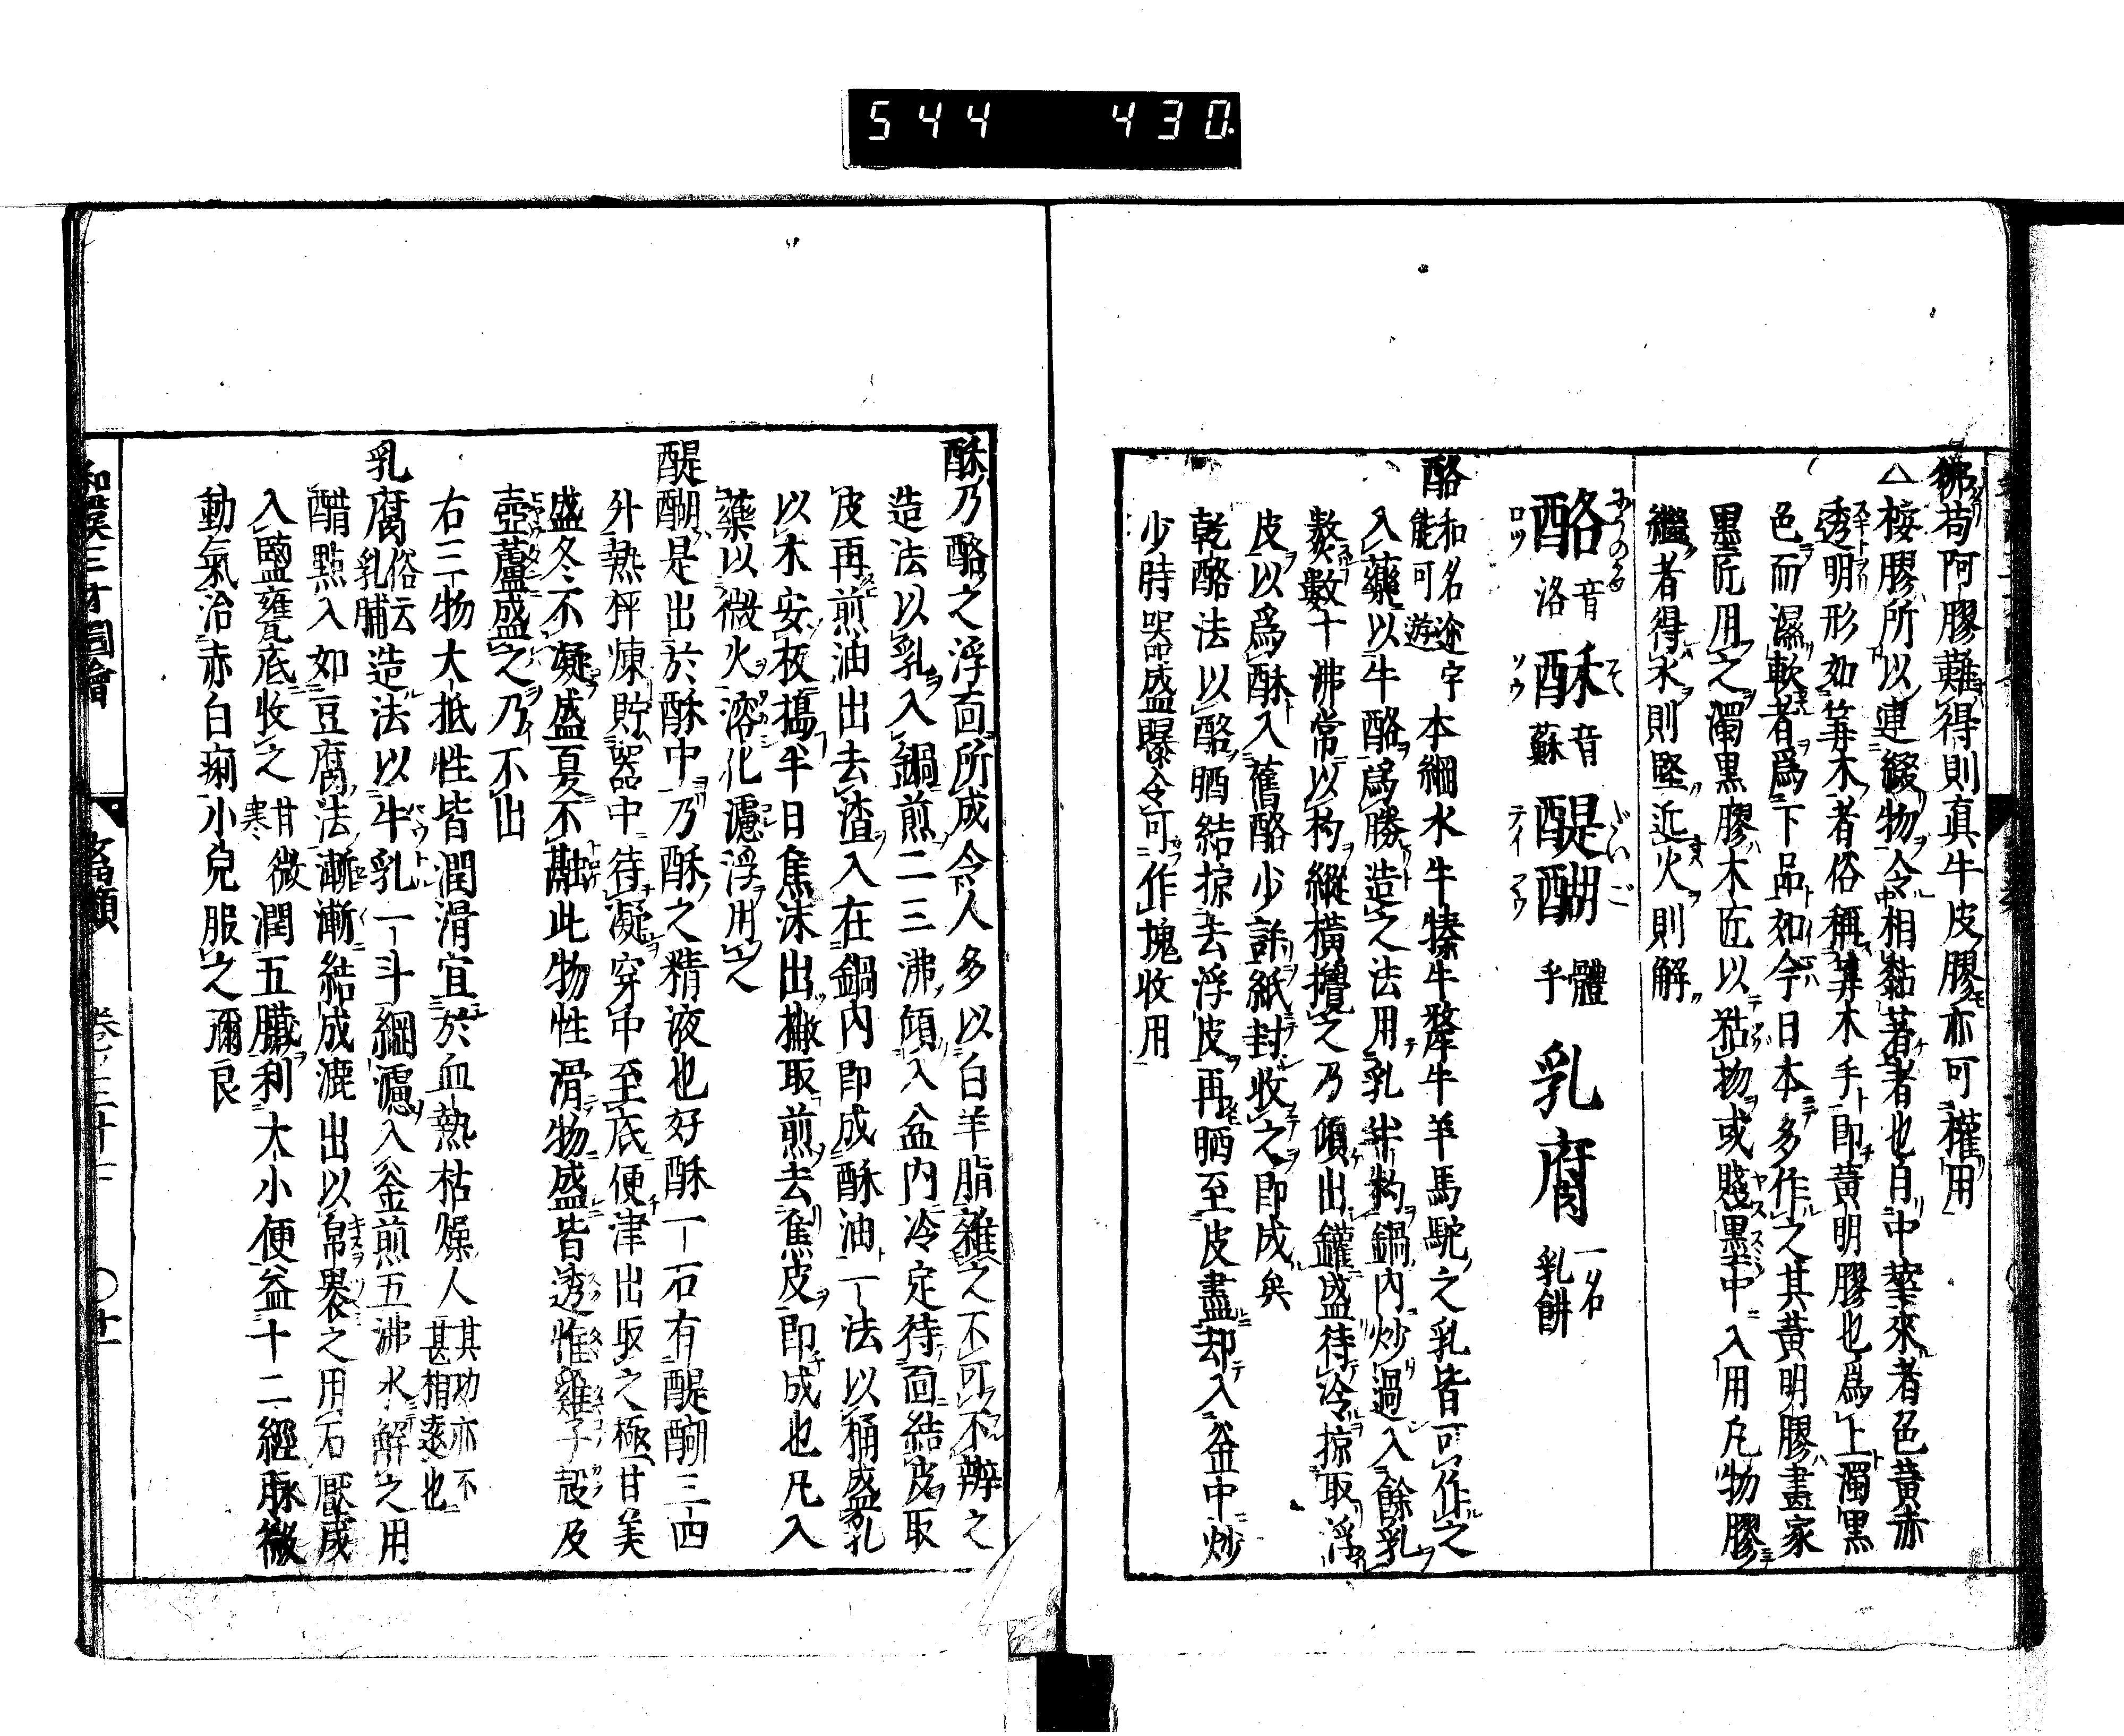 544 430.
苟阿膠難得則真牛皮膠亦可權用
△按膠所以連綴物令相黏著者也自中華來者色黃赤
透明形如筭木者俗稱筭木手即黃明膠也爲上濁黑
色而濕軟者爲下品如今日本多作之其黃明膠畫家
墨匠用之濁黑膠木匠以粘物或賤墨中入用凡物膠
繼者得水則堅近火則解
酪 音洛 酥 音蘇 醍醐 體乎 乳腐 一名乳餅
酪 和名能可遊 本綱水牛㹀牛犛牛羊馬駝之乳皆可作之
入藥以牛酪爲勝造之法用乳半杓鍋內炒過入餘乳
熬數十沸常以杓縱橫攪之乃傾出罐盛待冷掠取浮
皮以爲酥入舊酪少許紙封收之即成矣
乾酪法以酪晒結掠去浮皮再晒至皮盡却入釜中炒
少時器盛曝令可作塊收用
酥乃酪之浮面所成今人多以白羊脂雜之不可不辨之
造法以乳入鍋煎二三沸傾入盆內冷定待面結皮取
皮再煎油出去渣入在鍋內即成酥油一法以桶盛乳
以木安板搗半日焦沫出撇取煎去焦皮即成也凡入
藥以微火溶化濾浮用之
醍醐是出於酥中乃酥之精液也好酥一石有醍醐三四
升熱抨煉貯器中待凝穿中至底便津出取之極甘美
盛冬不凝盛夏不融此物性滑物盛皆透惟雞子殼及
壺蘆盛之乃不出
右三物大抵性皆潤滑宜於血熱枯燥人 其功亦不甚相遠也
乳腐 俗云乳脯 造法以牛乳一斗絹濾入釜煎五沸水解之用
醋點入如豆腐法漸漸結成漉出以帛裹之用石壓成
入鹽甕底收之 甘微寒 潤五臟利大小便益十二經脉微
動氣治赤白痢小兒服之彌良
和漢三才圖會 畜類 卷ノ三十七 〇 十一